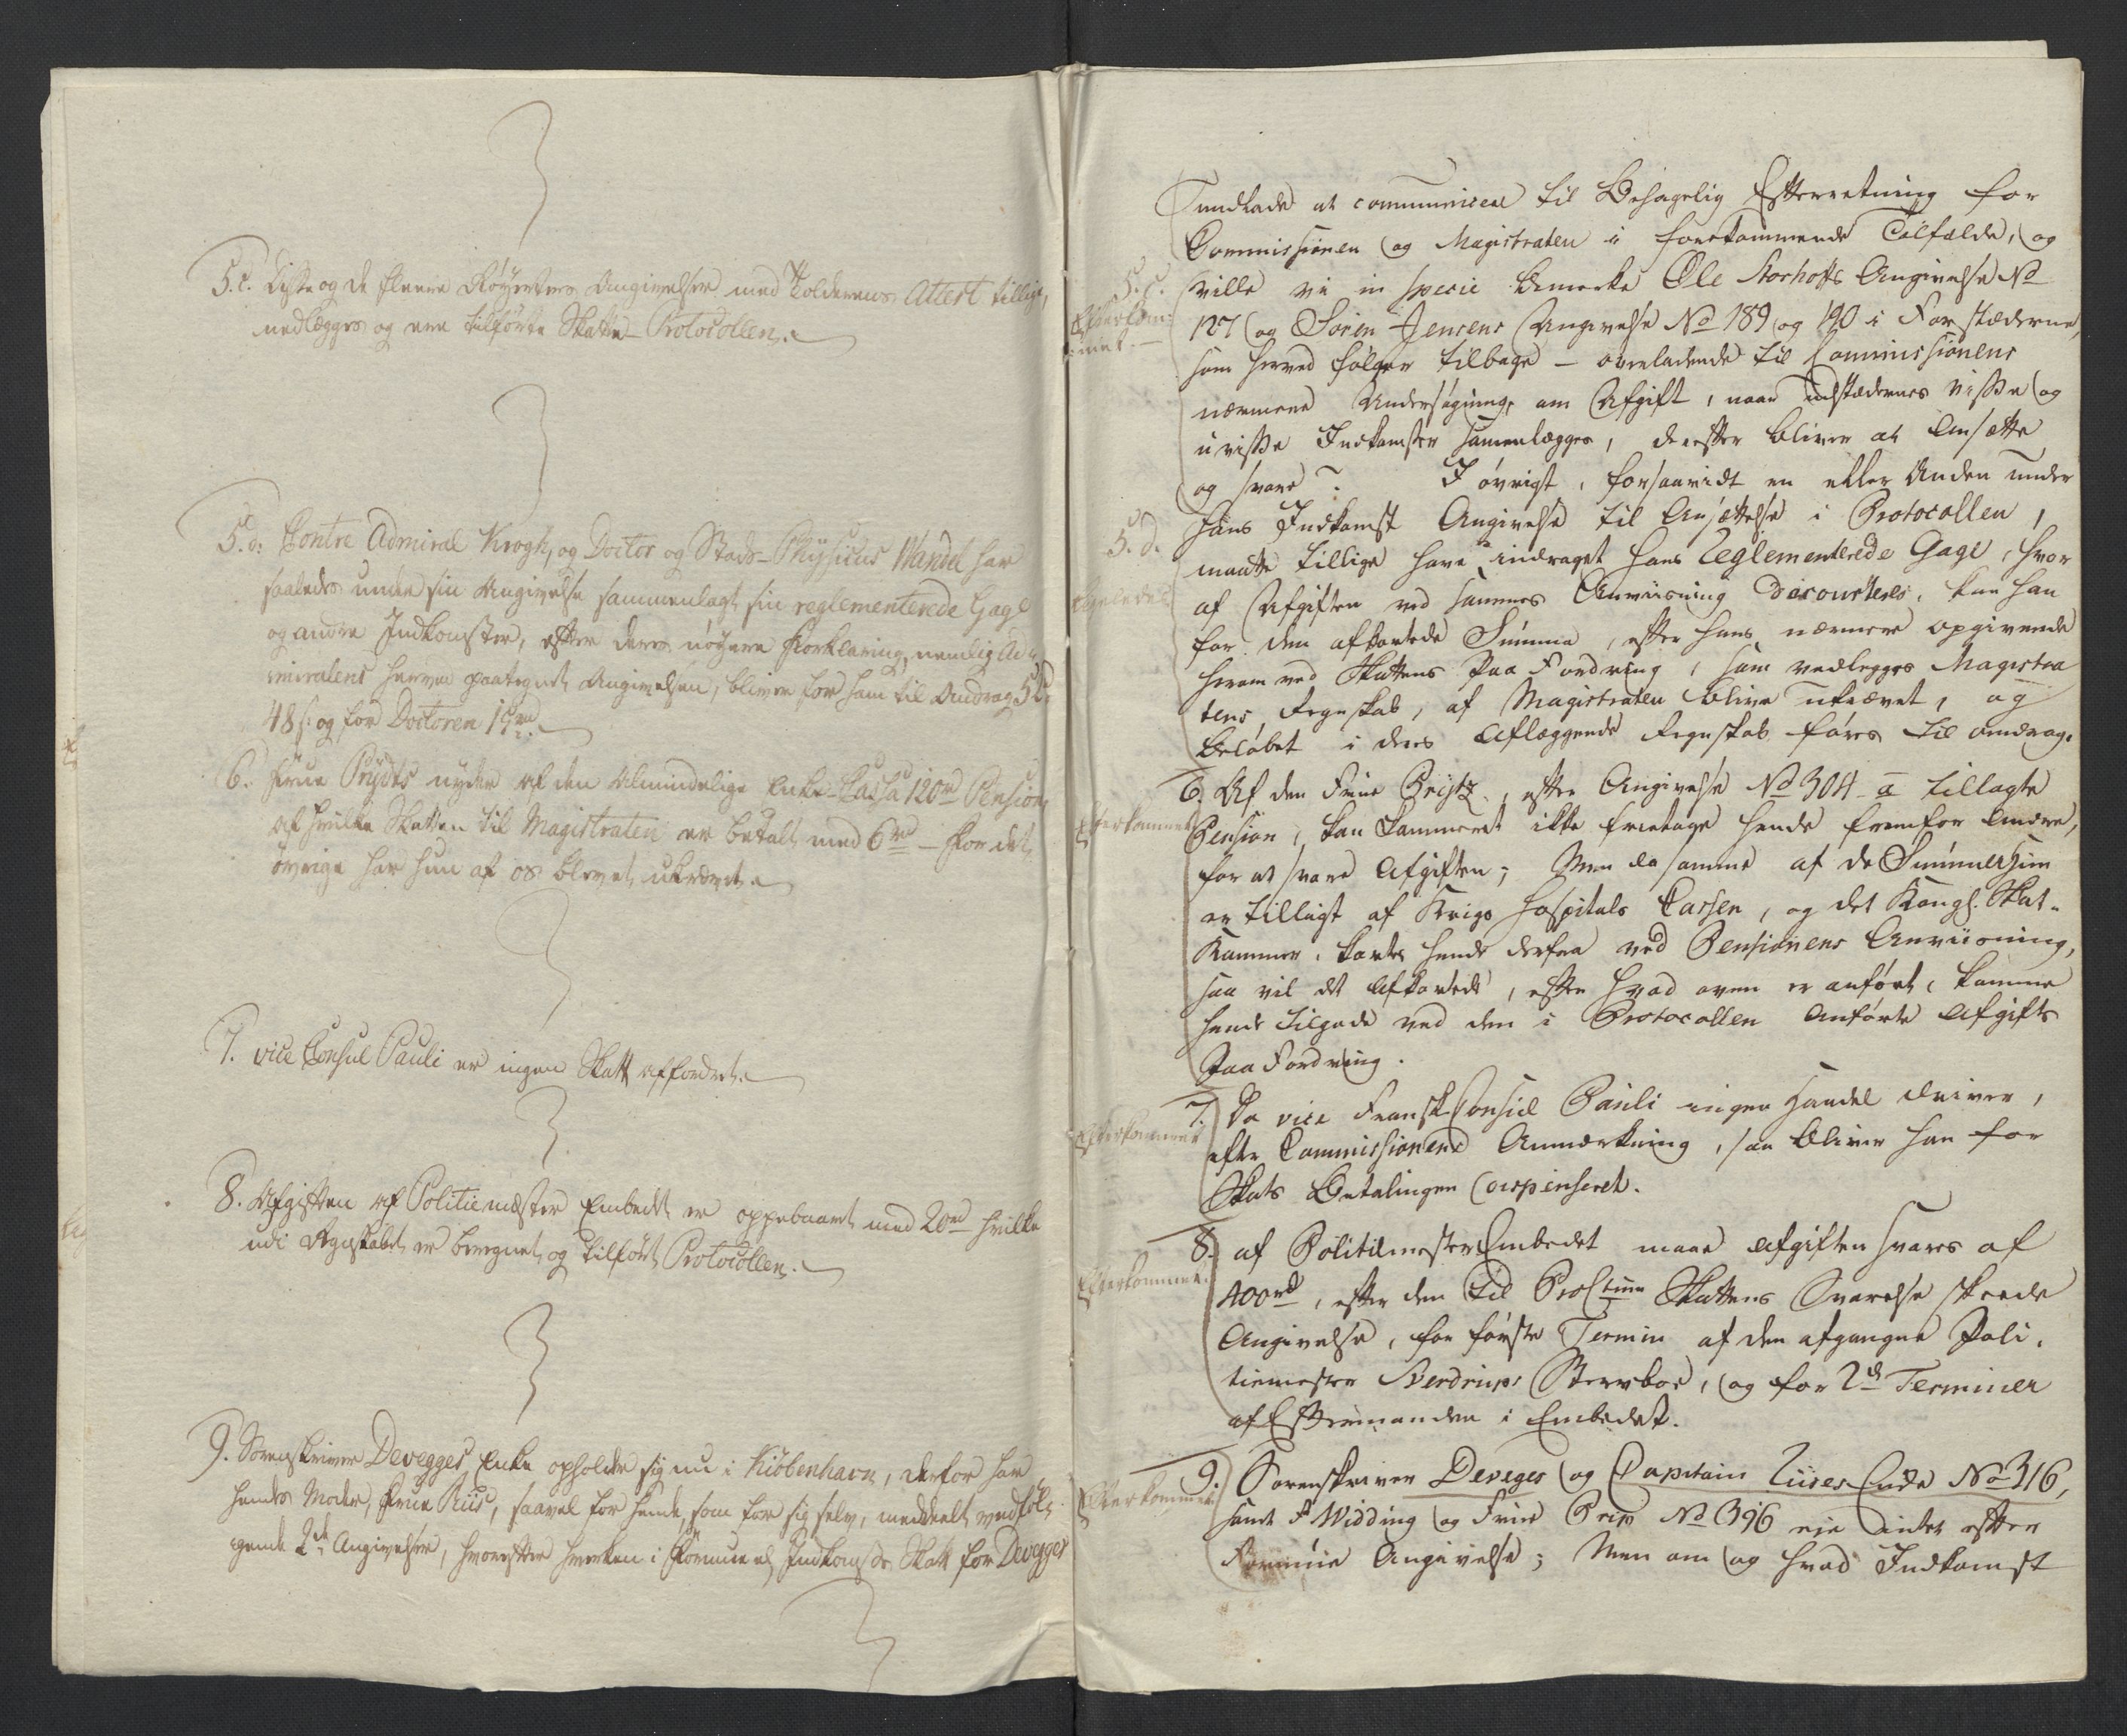 5.c. Disse og de fleere Røyerters Angivelser med Tolderens Attest tillige,
nedlægges og ere tilførte Skatte-Protocollen.
5.d: Contre Admiral Krogh, og Doctor og Stads-Physicus Wandel har
saaledes under sin Angivelse sammenlagt sin reglementerede Gage
og andre Indkomster, efter deres nøyere Forklaring, nemlig Ad-
miralens herved paategnet Angivelsen, bliver for ham til Andrag 52
48 s: og for Doctoren 19 rd.
6. Frue Prydts nyder af den Almindelige Enke-Cassa 120 rd Pension
af hvilke Skatten til Magistraten er betalt med 6 rd - for det
øvrige har hun af os blevet ukrævet.
7. vice Consul Pauli er ingen Skatt affordret.
8. Afgiften af Politiemester Embedet er oppebaaret med 20 rd hvilke
udi Regnskabet er beregnet og tilført Protocollen.
9. Sorenskriver Devegges Enke opholder sig nu i Kiøbenhavn, derfor har
hendes Moder, Frue Riis, saavel for hende, som for sig selv, meddeelt vedføl-
gende 2de Angivelser, hvorefter hverken i Formue el Indkomst Skatt for Devegges
undlade at communicere til Behagelig Efterretning for
Commissionen og Magistraten i forekommende Tilfælde, og
5.c. ville vi in specie bemerke Ole Korhoffs Angivelse No
Efterkom-
met.
127 og Søren Jensens Angivelse No 189 og 190 i Forstæderne,
som herved følger tilbage - overladende til Commissionens
nærmere Undersøgning, om Afgift, naar udstædernes visse og
uvisse Indkomster samenlægges, derefter bliver at Ansætte
og svare. I øvrigt, forsaavidt en eller Anden under
5.d. hans Indkomst Angivelse til Ansættelse i Protocollen,
maatte tillige have inddraget hans Reglementerede Gage, hvor
ligeledes
af Afgiften ved sammes Anviisning Decourteres, kan han
for den afkortede Summa, efter hans nærmere opgivende
herom ved Skattens Paa Fordring, som vedlegges Magistra
tens Regnskab, af Magistraten blive ukrævet, og
beløbet i dens Aflæggende Regnskab føres til andrag.
6. Af den Frue Prijtz, efter Angivelse No 304 - a tillagte
Efterkommet
Pension, kan Kammeret ikke fritage hende fremfor Andre,
for at svare Afgiften; Men da samme af de Summer hun
er tillagt af Krigs Hospitals Cassen, og det Kongl. Skat-
Kammer, kortes hende derfra ved Pensionens Anviisning,
saa vil det Afkortede, efter hvad oven er anført, komme
hende tilgode ved den i Protocollen Anførte Afgifts
Paa Fordring.
7. Da vice Fransk Consul Pauli ingen Handel driver,
Efterkommet
efter Commissionens Anmærkning, saa bliver han for
Skats Betalingen dispenseret.
8. af Politiemester Embedet maae Afgiften svares af
Efterkommet.
400 rd, efter den til Skattens Svarelse skeede
Angivelse, for første Termin af den afgangne Poli-
tiemester Sverdrups Sterboe, og for 2de Terminer
af Eftermanden i Embedet.
9. Sorenskriver Deveges og Capitain Riises Enke No 316,
Efterkommet
samt Fr Widding og Frue No 396 eie intet efter
Formue Angivelse; Men om og hvad Indkomst